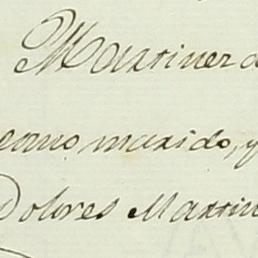 Martinez d
como marido, y
Dolores Martin